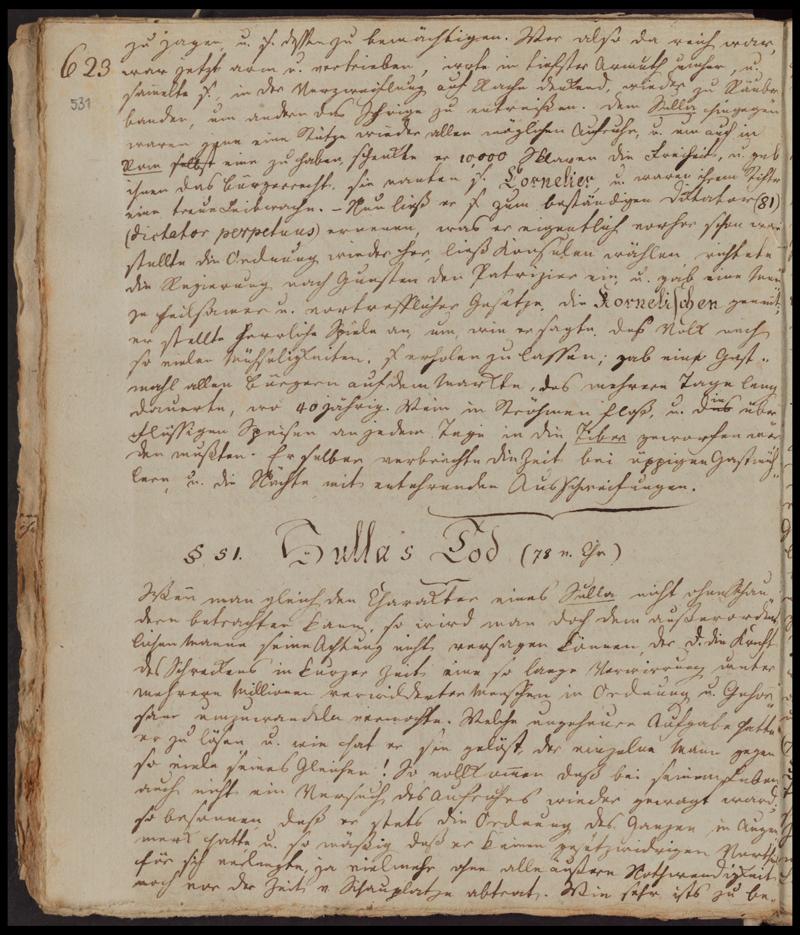 623
531
zu jagen, u. s. dessen zu bemächtigen. Wer also da reich war,
war jetzt arm u. vertrieben, irrte in tiefster Armuth umher, u.
sammelte s. in der Verzweiflung auf Rache denkend, wieder zu Räuber
banden, um andern das Ihrige zu entreißen. Dem Sulla hingegen
waren ... eine Stütze wieder allen möglichen Aufruhr, u. um auch in
Rom selbst eine zu haben, schenkte er 10,000 Sklaven die Freiheit, u. gab
ihnen das Bürgerrecht. sie nanten s. Cornelier, u. waren ihrem
eine treue Leibwache. – Nun ließ er s. zum beständigen Diktator (81)
(dictator perpetuus) ernenen, was er eigentlich vorher schon war
stellte die Ordnung wieder her, ließ Konsulen wählen, richtete
die Regierung nach Gunsten der Patrizier ein, u. gab eine Men
ge heilsamer u. vortrefflicher Gesetze, die Kornelischen genañt;
er stellte herrliche Spiele an, um, wie er sagte, das Volk nach
so vielen Mühseligkeiten, s. erholen zu lassen; gab eine Gast-
mahl allen Bürgern auf dem Markte, das mehrere Tage lang
dauerte, wo 40jährig. Wein in Ströhmen floß, u. die über
flüssigen Speisen an jedem Tage in die Tiber geworfen wer
den mußten. Er selber verbrachte die Zeit bei üppigen Gastmäh-
lern, u. die Nächte mit entehrenden Ausschweifungen.
§ 51. Sulla's Tod (78 v. Chr)
Weñ man gleich den Charakter eines Sulla nicht ohne Schau
dern betrachten kann, so wird man doch dem außerordent
lichen Manne seine Achtung nicht versagen können, der d. die Kraft
des Schreckens in kurzer Zeit eine so lange Verwirrung unter
mehrern Millionen verwilderter Menschen in Ordnung u. Gehor
sam umzuwandeln vermochte. Welche ungeheure Aufgabe hatte
er zu lösen, u. wie hat er sie gelöst, der einzelne Mann gegen
so viele seines Gleichen! So vollkomen daß bei seinem Leben
auch nicht ein Versuch des Aufruhrs wieder gewagt ward;
so besonnen, daß er stets die Ordnung des Ganzen im Augen
merk hatte, u. so mäßig daß er keinen gesetzwidrigen Vorth
für sich verlangte, ja vielmehr ohne alle äußere Nothwendigkeit
noch vor der Zeit v. Schauplatze abtrat. Wie sehr ists zu be-